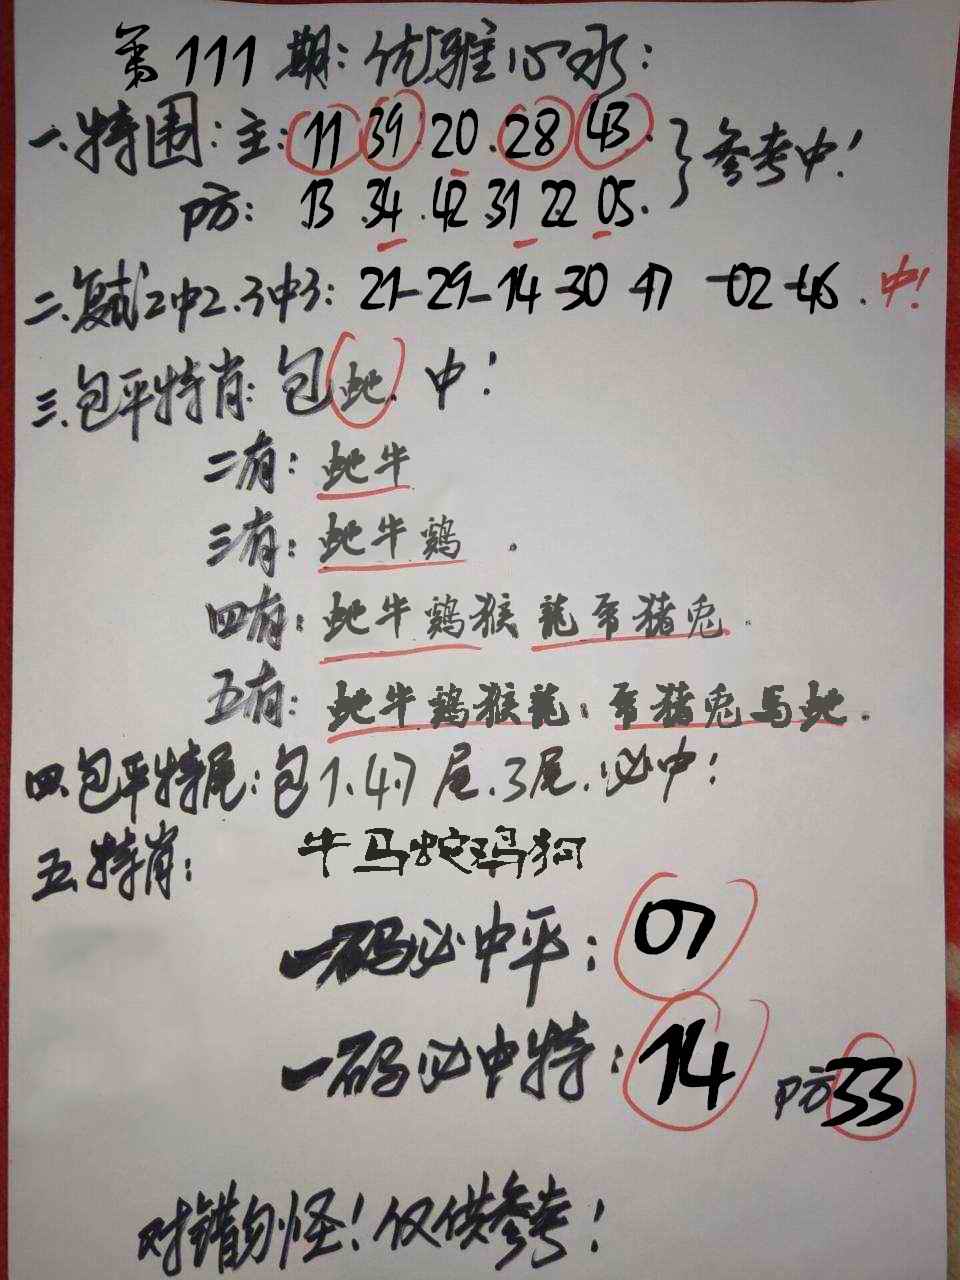 第111期：优雅心水：
一.特围：主：11 39 20.28 43. }参考中！
防：13.34.42.31 22 05.
二.复式2中2.3中3：21-29-14-30 47-02-46.中！
三.包平特肖：包蛇.中！
二有：蛇牛
三有：蛇牛鸡.
四有：蛇牛鸡猴 龍虎猪兔.
五有：蛇牛鸡猴龍：虎猪兔馬蛇.
四.包平特尾：包1.4.7尾.3尾.必中！
五.特肖：牛马蛇鸡狗
一码必中平：07
一码必中特：14 防33
对错勿怪！仅供参考！